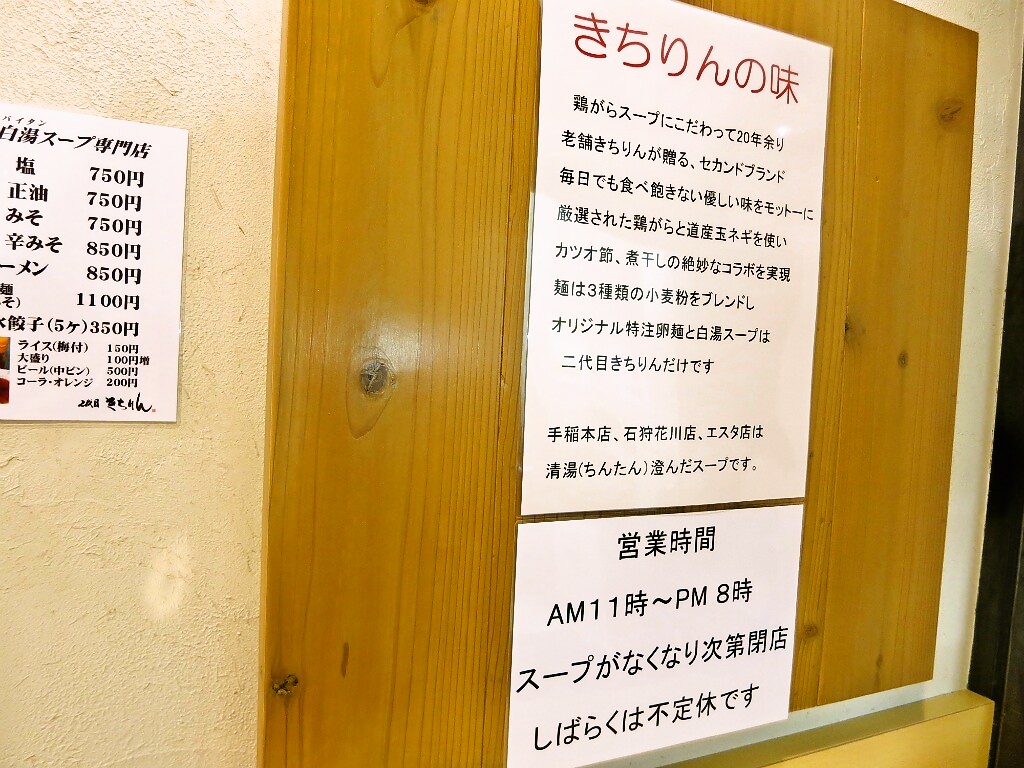 パイタン
白湯スープ専門店
塩 750円
正油 750円
みそ 750円
辛みそ 850円
ーメン 850円
麺
そ) 1100円
水餃子(5ケ)350円
ライス(梅付) 150円
大盛り 100円増
ビール(中ビン) 500円
コーラ・オレンジ 200円
2代目 きちりん
きちりんの味
鶏がらスープにこだわって20年余り
老舗きちりんが贈る、セカンドブランド
毎日でも食べ飽きない優しい味をモットーに
厳選された鶏がらと道産玉ネギを使い
カツオ節、煮干しの絶妙なコラボを実現
麺は3種類の小麦粉をブレンドし
オリジナル特注卵麺と白湯スープは
二代目きちりんだけです
手稲本店、石狩花川店、エスタ店は
清湯(ちんたん)澄んだスープです。
営業時間
AM11時～PM 8時
スープがなくなり次第閉店
しばらくは不定休です